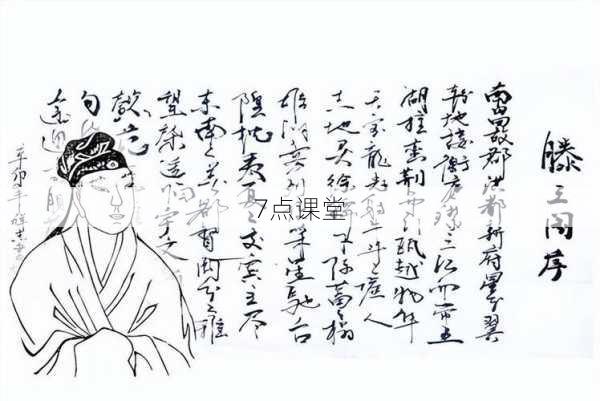 滕王阁序
南昌故郡洪都新府星分翼
轸地接衡庐襟三江而带五
湖控蛮荆而引瓯越物华
天宝龙光射斗之墟人
杰地灵徐孺下陈蕃榻
雄州雾列俊采星驰台
隍枕夷夏之交宾主尽
东南之美都督阎公之雅
望棨遥临宇文
懿范
旬
辛卯年
7点课堂